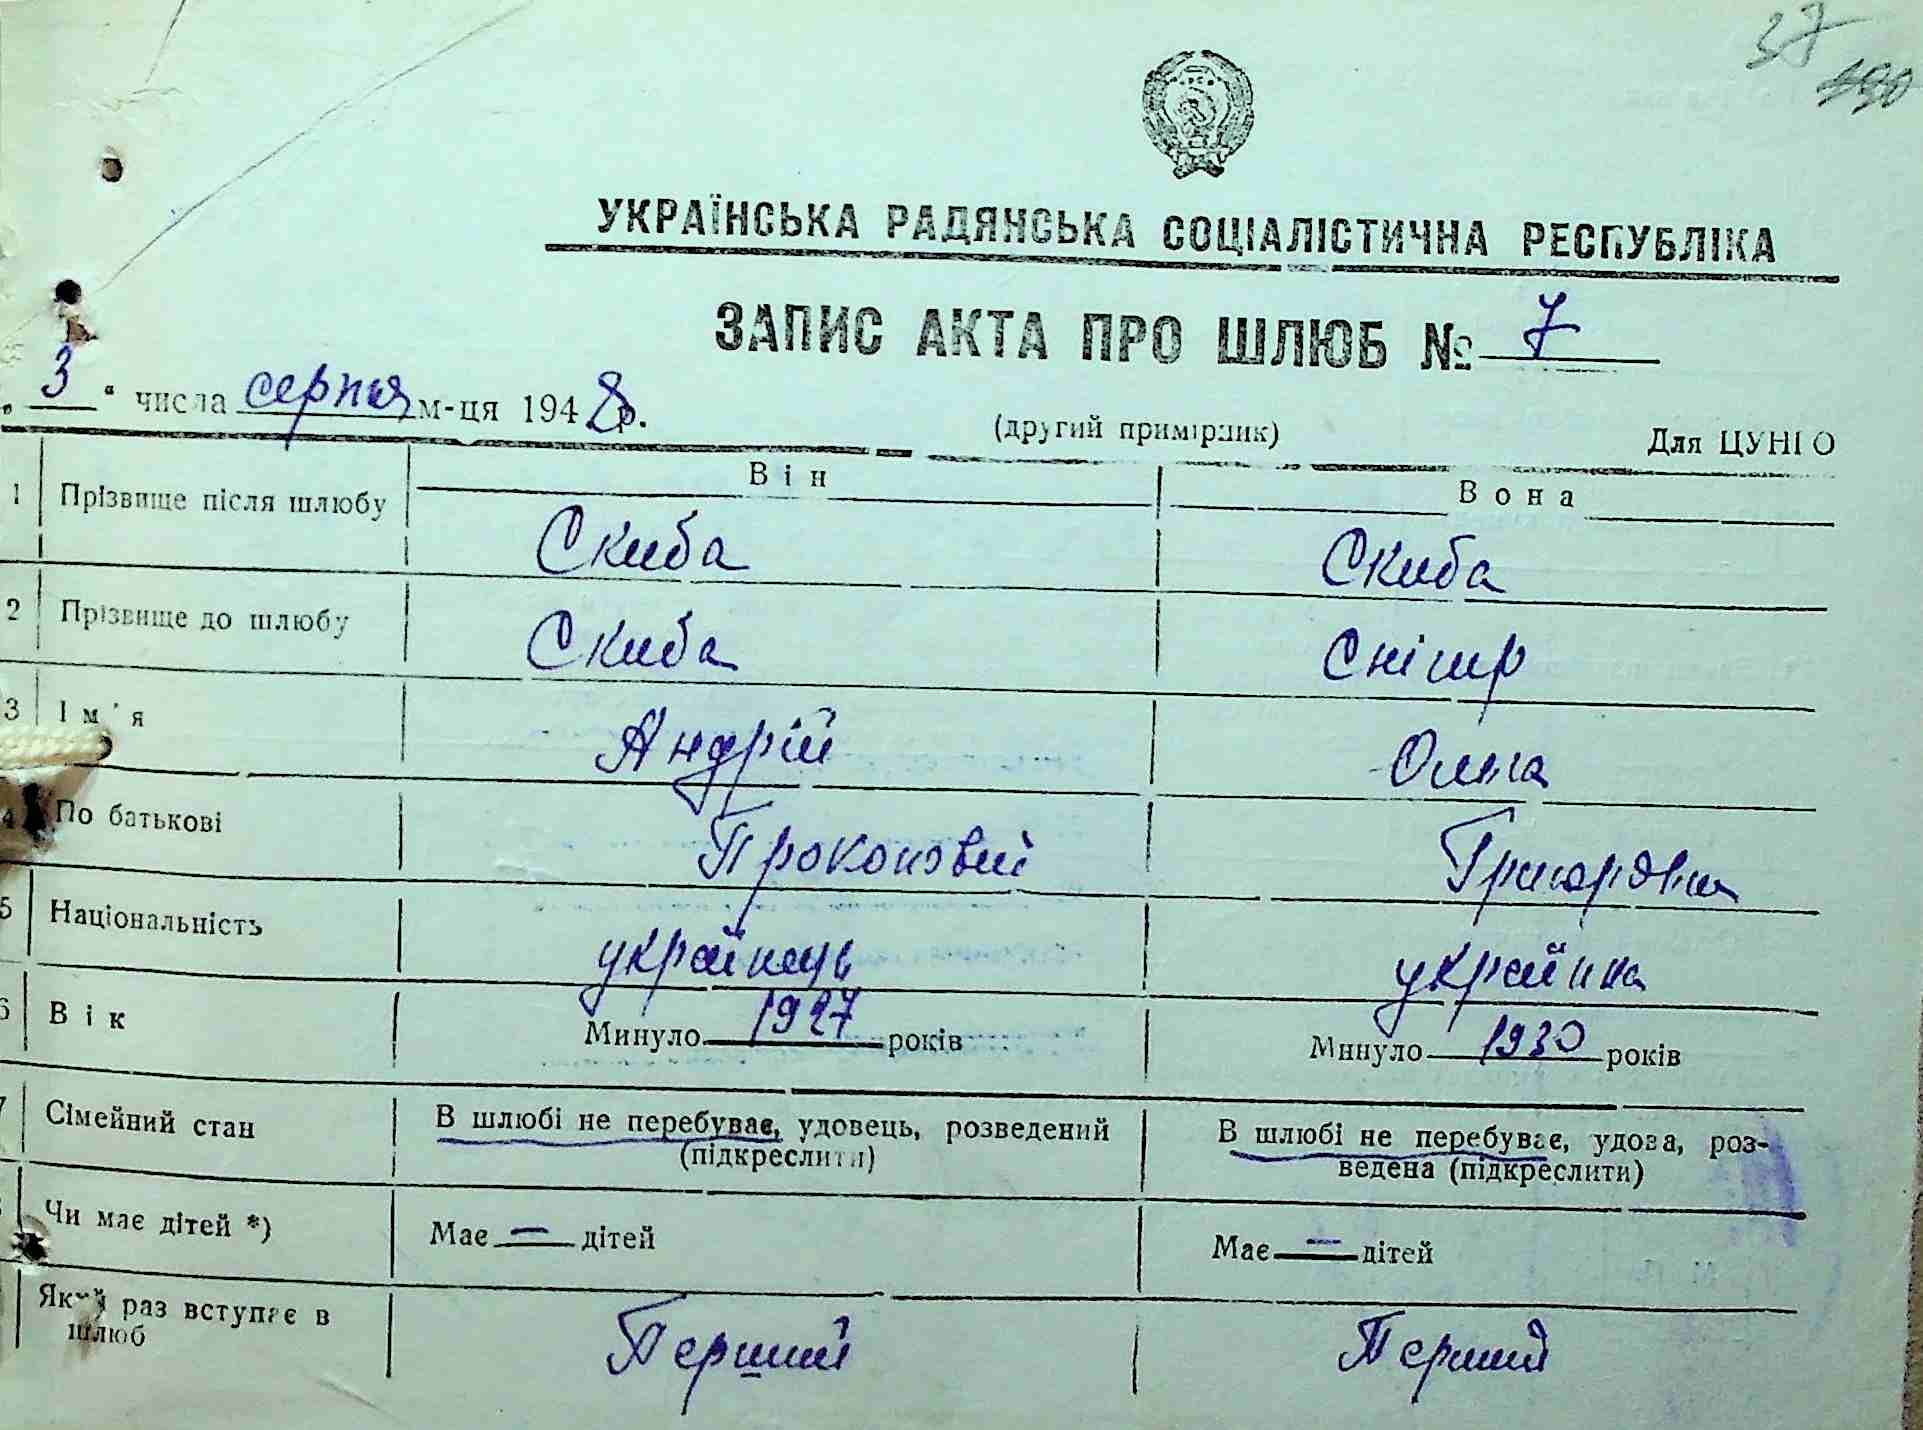 37
190
УКРАЇНСЬКА РАДЯНСЬКА СОЦІАЛІСТИЧНА РЕСПУБЛІКА
ЗАПИС АКТА ПРО ШЛЮБ № 7
„ 3 “ числа серпня м-ця 1948 р.
(другий примірник) Для ЦУНГО
Він Вона
1 Прізвище після шлюбу Скиба Скиба
2 Прізвище до шлюбу Скиба Снігир
3 Ім'я Андрій Ольга
4 По батькові Прокопович Григорівна
5 Національність українець українка
6 Вік Минуло 1927 років Минуло 1930 років
7 Сімейний стан В шлюбі не перебуває, удовець, розведений (підкреслити) В шлюбі не перебуває, удова, роз-
ведена (підкреслити)
Чи має дітей *) Має — дітей Має — дітей
Який раз вступає в
шлюб Перший Перший